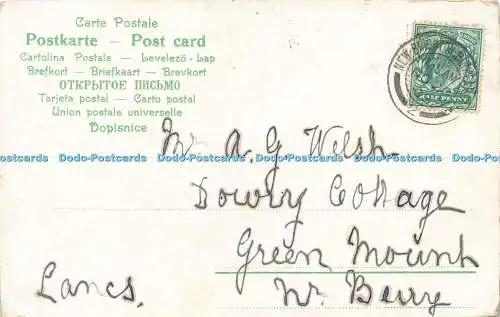 Carte Postale
Postkarte – Post card
Cartolina Postale – Levelező-Lap
Brefkort – Briefkaart – Brevkort
ОТКРЫТОЕ ПИСЬМО
Tarjeta postal – Carto postal
Union postale universelle
Dopisnice
HALF PENNY
Mr A. G Welsh
Dodo-Postcards Dodo-Postcards Dodo-Postcards Dodo-Postcards Dodo-Postcards Dodo-Postcards
Cottage
Green Mount
Nr. Berry
Lancs.